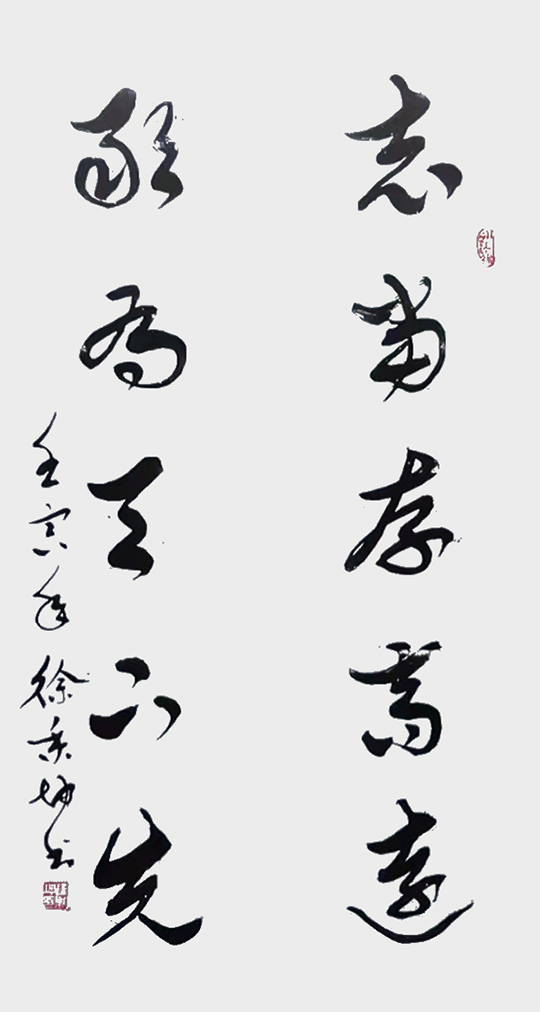 志当存高远
敢为天下先
壬寅年徐秉坤书